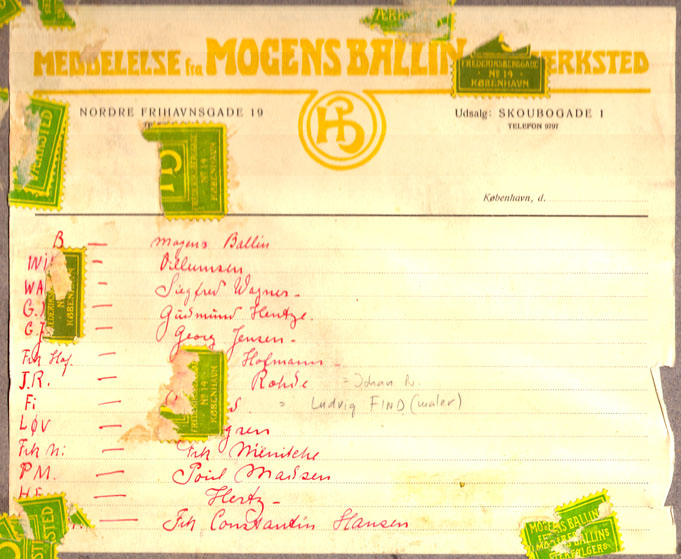 MEDDELELSE fra MOGENS BALLIN ÆRKSTED
FREDERIKSBERGGADE
No 14
KØBENHAVN
NORDRE FRIHAVNSGADE 19
Udsalg: SKOUBOGADE 1
TELEFON 9797
VÆRKSTED
No 14
København, d.
B — Mogens Ballin
Willumsen
WA Siegfred Wagner -
G. Gudmund Hentze.
G.J. — Georg Jensen -
No
KØBENHAVN
Frk Hof. — Hofmann
J.R. — Rohde = Johan R.
Fi = Ludvig FIND (maler)
No 14
KØBENHAVN
LØV gren
Frk N. — Frk
P.M. — Poul Madsen
— Hertz -
— Frk Constantin Hansen
KSTED
MOGENS BALLIN